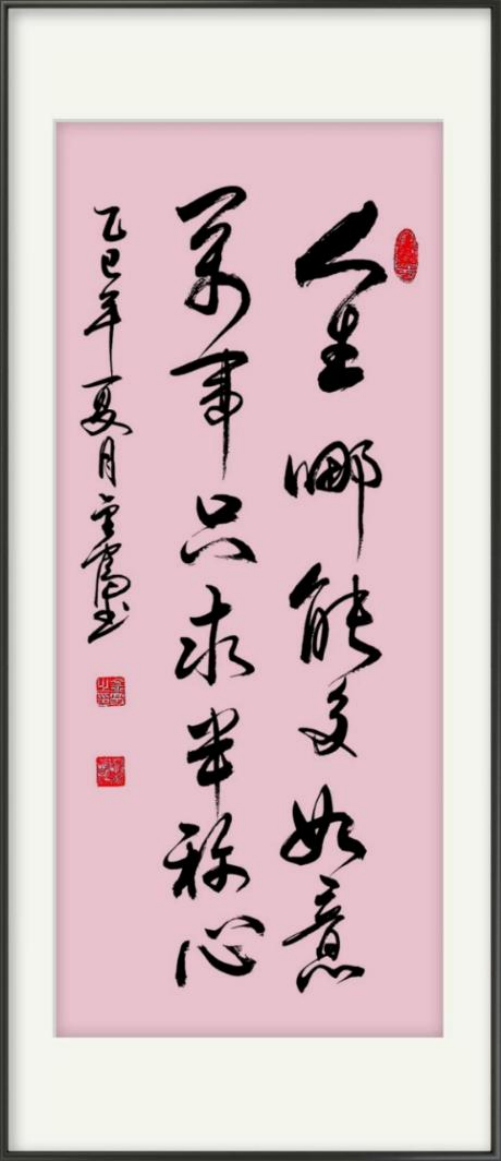 人生哪能多如意
万事只求半称心
乙巳年夏月